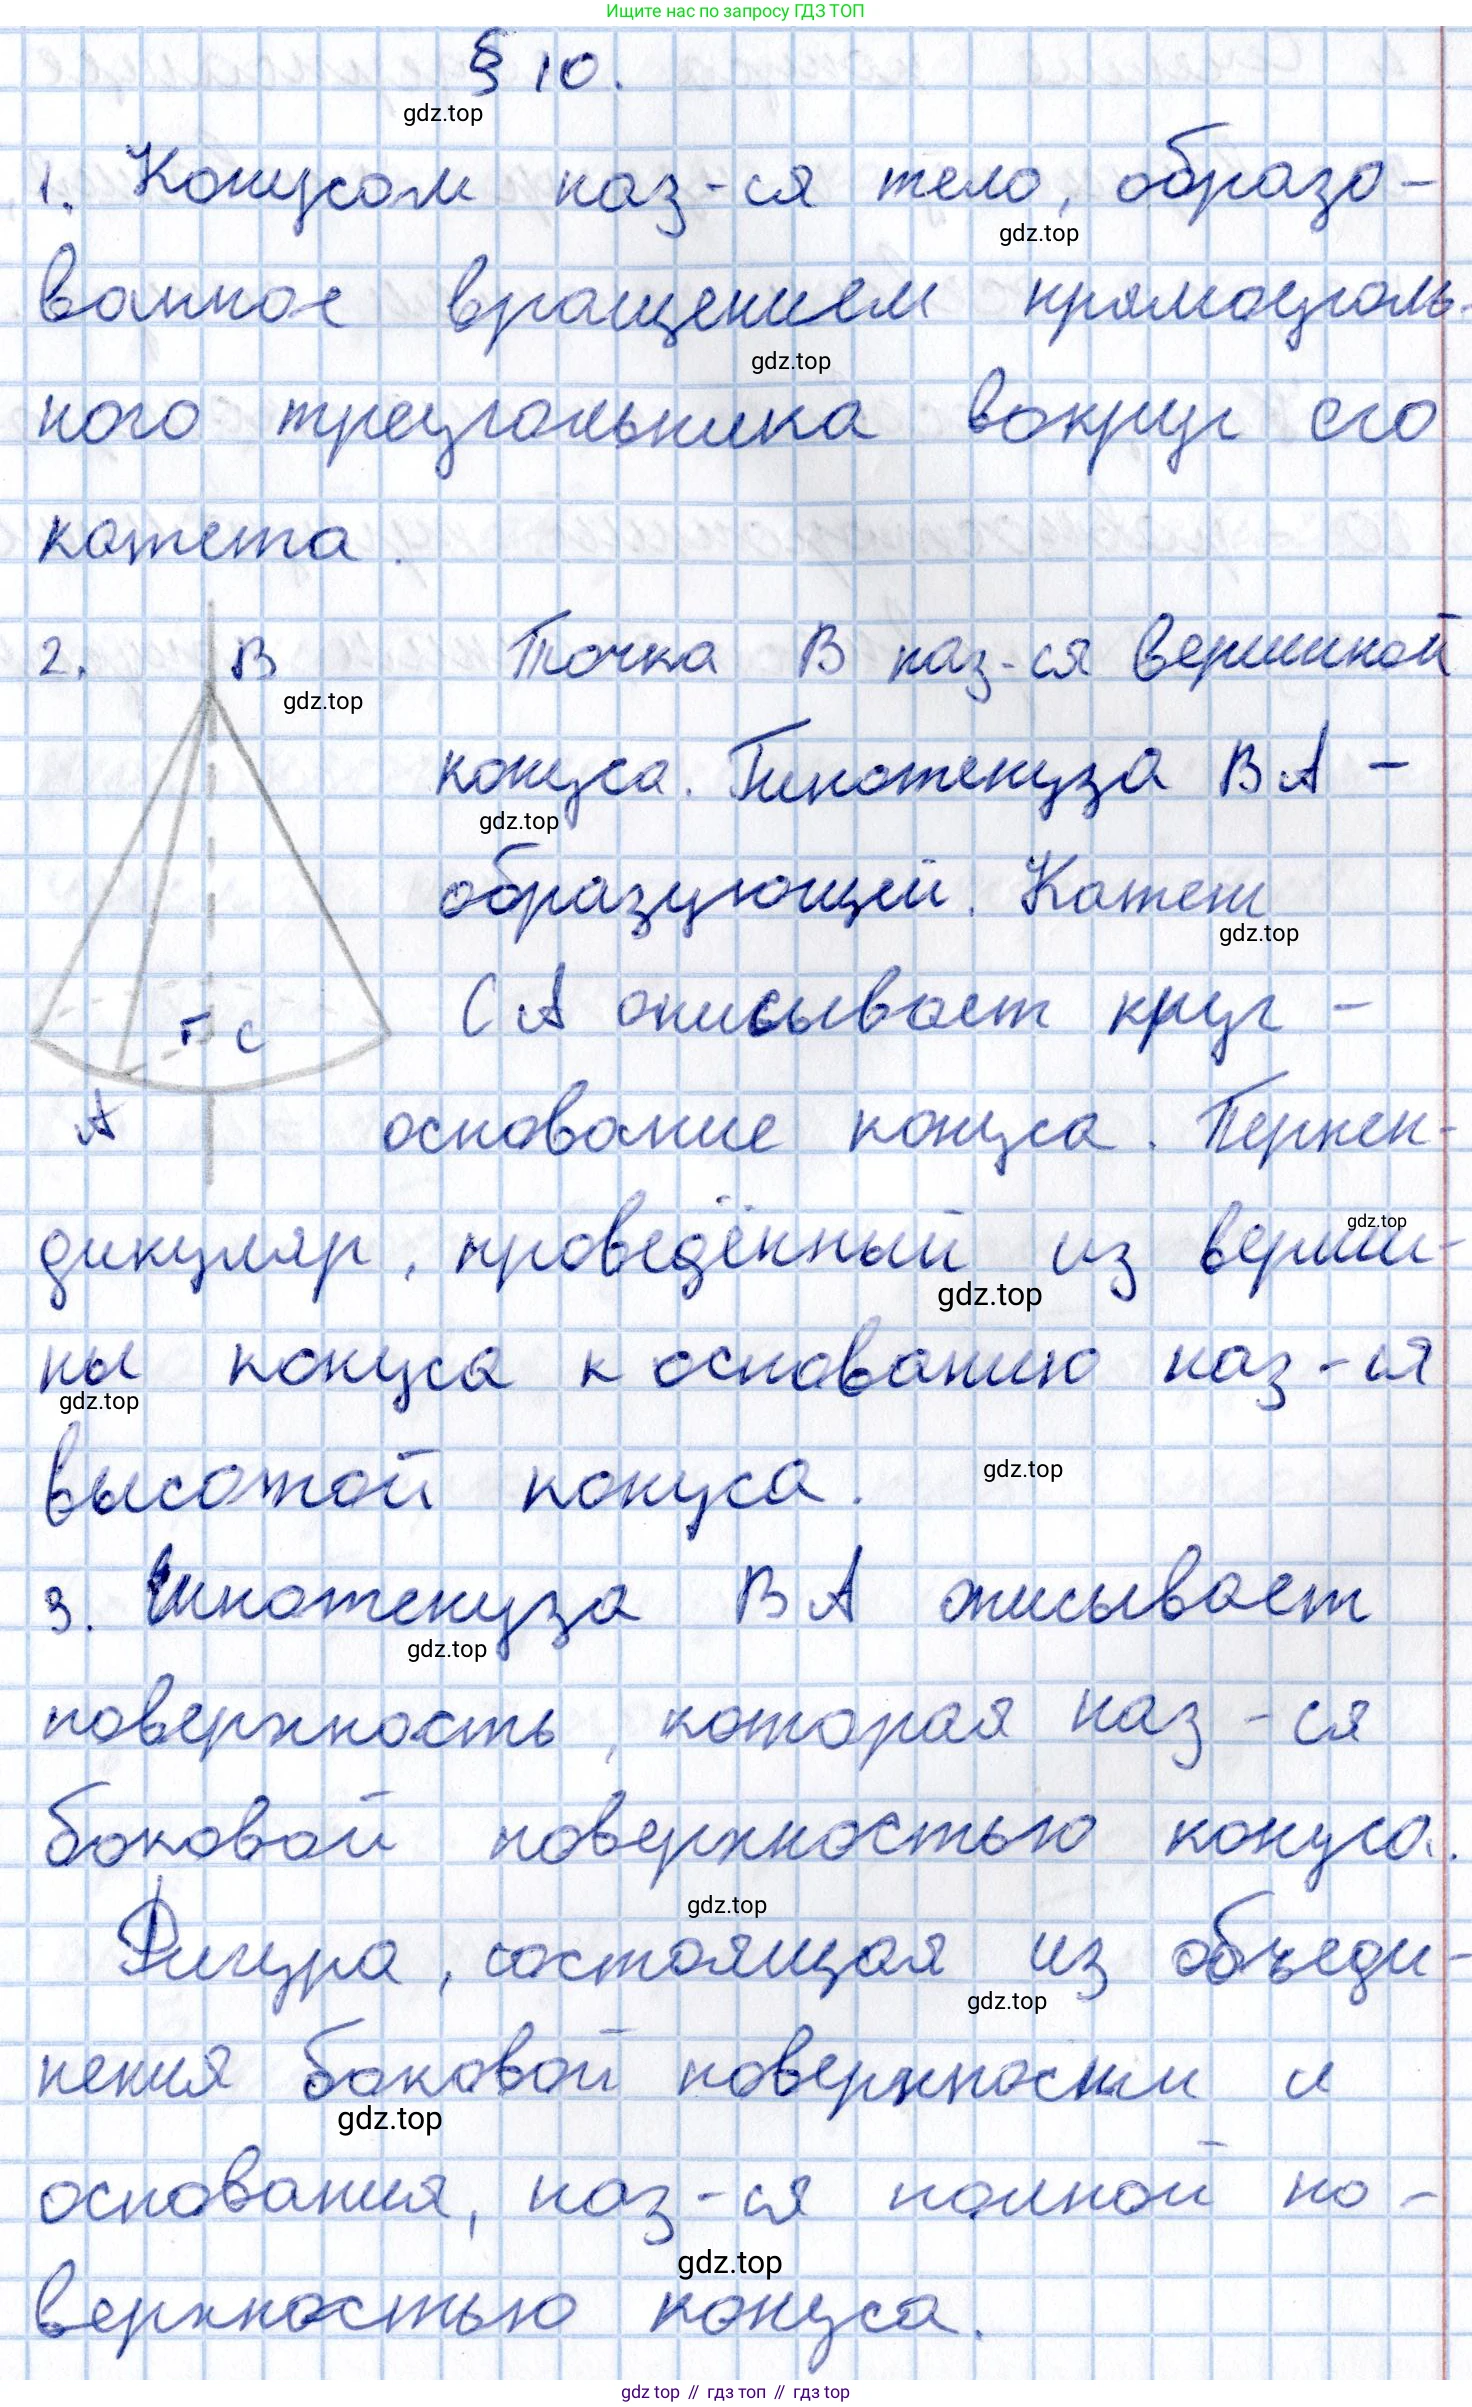 Ищите нас по запросу ГДЗ ТОП
§ 10.
gdz.top
1. Конусом наз-ся тело, образо-
gdz.top
ванное вращением прямоуголь-
gdz.top
ного треугольника вокруг его
катета.
2. B Точка B наз-ся вершиной
gdz.top
конуса. Гипотенуза BA -
gdz.top
образующей. Катет
gdz.top
CA описывает круг -
C
A основание конуса. Перпен-
дикуляр, проведённый из верши-
gdz.top
gdz.top
ны конуса к основанию наз-ся
gdz.top
высотой конуса.
gdz.top
3. Гипотенуза BA описывает
gdz.top
поверхность, которая наз-ся
боковой поверхностью конуса.
gdz.top
Фигура, состоящая из объеди-
gdz.top
нения боковой поверхности и
gdz.top
основания, наз-ся полной по-
gdz.top
верхностью конуса.
gdz top // гдз топ // gdz top